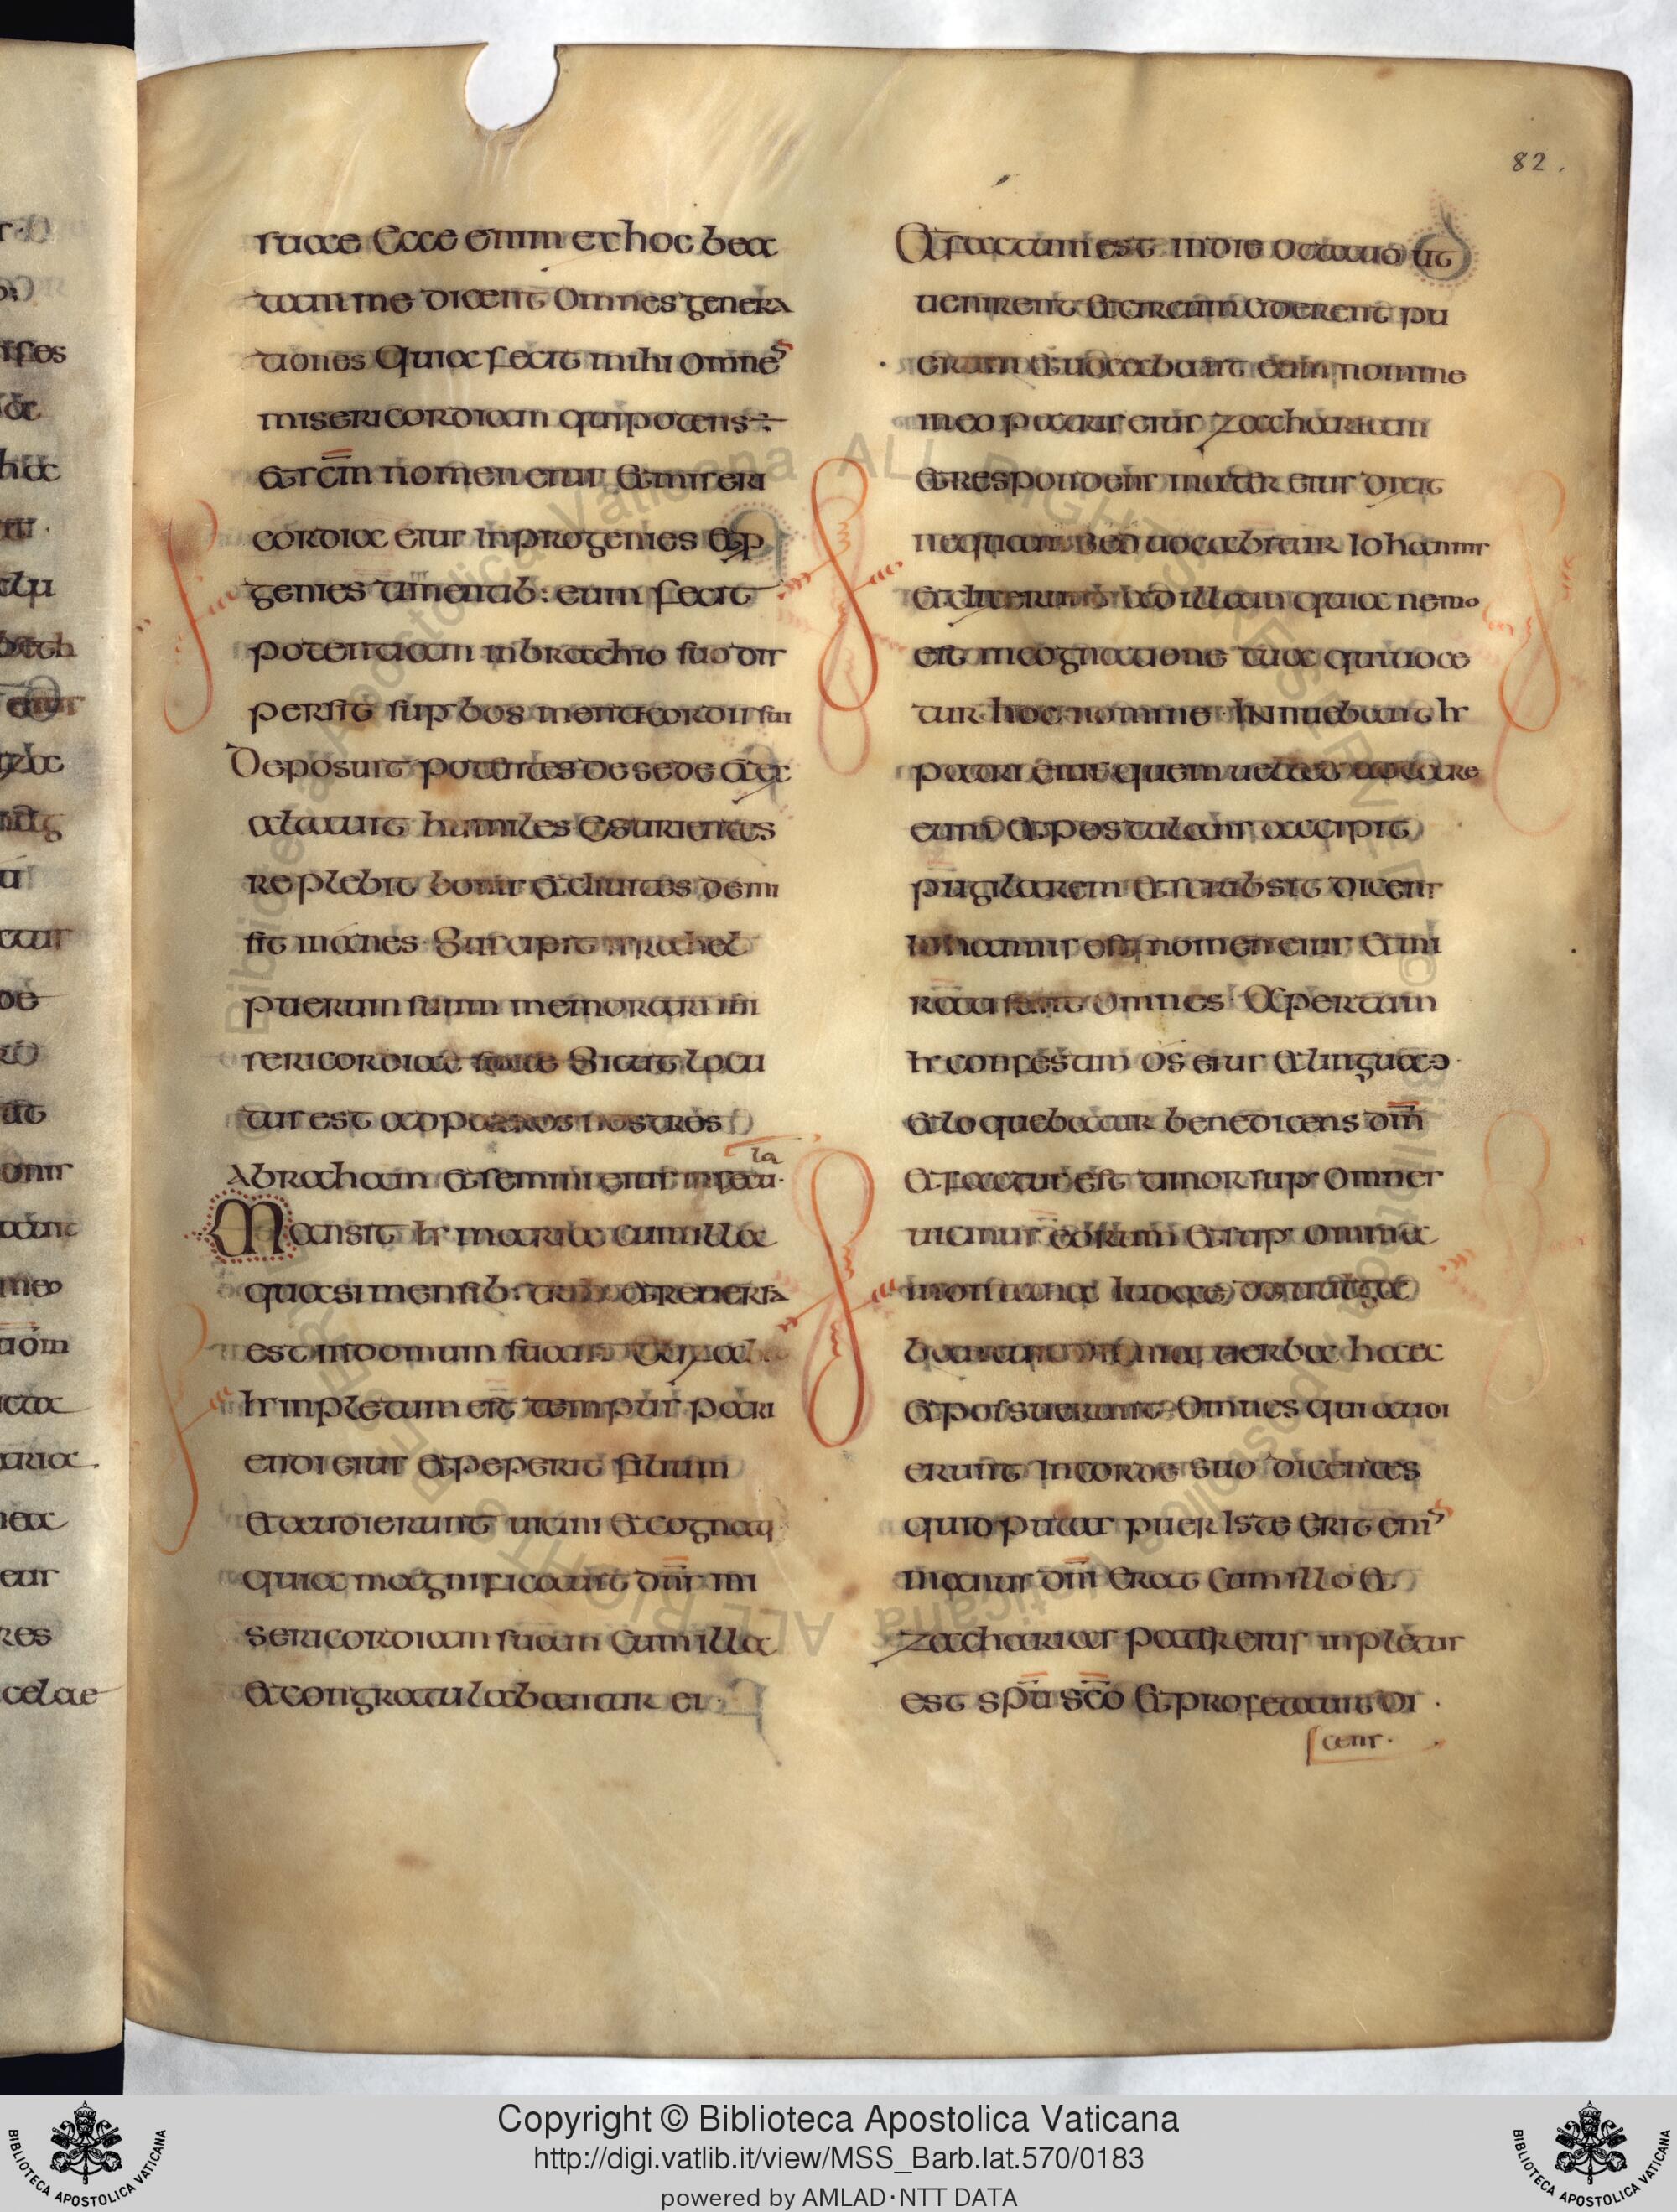 82.
suae Ecce enim ex hoc bea
tam me dicent Omnes genera
tiones Quia fecit mihi omnes
misericordiam qui potens ÷
et scm nomen eius Et miseri
cordia eius in progenies et p
genies timentib: eum fecit
potentiam in brachio suo dis
persit sup bos mente cordis sui
Deposuit potentes de sede et ex
altauit humiles Esurientes
replebit bonis et diuites demi
sit inanes Suscipit israhel
puerum suum memorari mi
sericordiae suae Sicut locu
tus est ad patres nostros
Abracham et semini eius in saecu.
la
Mansit hr maria cum illa
quasi mensib: trib: et reuersa
est in domum suam
hr inpletum est tempus pari
endi eius et peperit filium
et audierunt uicini et cognati
quia magnificauit dns mi
sericordiam suam Cum illa
et congratulabantur ei ·
Et factum est in die octauo ut
uenirent et circumciderent pu
erum et uocabant eum nomine
in eo patris eius zacchariam
et respondens mater eius dicit
nequam sed uocabitur Iohannis
et dixerunt ad illam quia nemo
est in cognatione tua qui uoce
tur hoc nomine · Innuebant hr
patri eius quem uellet uocare
eum et postulans accipit
pugilarem et scribsit dicens
Iohannis est nomen eius et mi
rati sunt omnes Apertum
hr confestim os eius et lingua
et loquebatur benedicens dm
et factus est timor sup omnes
uicinus eorum et sup omnia
montana iudae diuulga
bantur omnia uerba haec
et possuerunt Omnes qui audi
erunt In corde suo dicentes
quid putas puer Iste Erit enis
manus dni Erat Cum illo et
zacharias pater eius inpletus
est spu sco Et profetauit di ·
cens ·
Copyright © Biblioteca Apostolica Vaticana
http://digi.vatlib.it/view/MSS_Barb.lat.570/0183
powered by AMLAD·NTT DATA
BIBLIOTECA APOSTOLICA VATICANA
BIBLIOTECA APOSTOLICA VATICANA